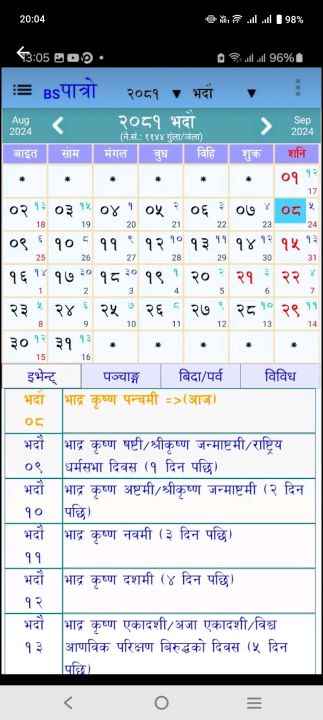 20:04 98%
13:05 96%
BSपात्रो २०८१ ▼ भदौ ▼
Aug २०८१ भदौ Sep
2024 (ने.सं.: ११४४ गुंला/ञंला) 2024
आइत सोम मंगल बुध विहि शुक्र शनि
* * * * * * ०१ १२
17
०२ १३ ०३ १५ ०४ १ ०५ २ ०६ ३ ०७ ४ ०८ ५
18 19 20 21 22 23 24
०९ ६ १० ८ ११ ९ १२ १० १३ ११ १४ १२ १५ १३
25 26 27 28 29 30 31
१६ १४ १७ ३० १८ ३० १९ १ २० २ २१ ३ २२ ४
1 2 3 4 5 6 7
२३ ५ २४ ६ २५ ७ २६ ८ २७ ९ २८ १० २९ ११
8 9 10 11 12 13 14
३० १२ ३१ १३ * * * * *
15 16
इभेन्ट् पञ्चाङ्ग बिदा/पर्व विविध
भदौ भाद्र कृष्ण पन्चमी =>(आज)
०८
भदौ भाद्र कृष्ण षष्टी/श्रीकृष्ण जन्माष्टमी/राष्ट्रिय
०९ धर्मसभा दिवस (१ दिन पछि)
भदौ भाद्र कृष्ण अष्टमी/श्रीकृष्ण जन्माष्टमी (२ दिन
१० पछि)
भदौ भाद्र कृष्ण नवमी (३ दिन पछि)
११
भदौ भाद्र कृष्ण दशमी (४ दिन पछि)
१२
भदौ भाद्र कृष्ण एकादशी/अजा एकादशी/विश्व
१३ आणविक परिक्षण बिरुद्धको दिवस (५ दिन
पछि)